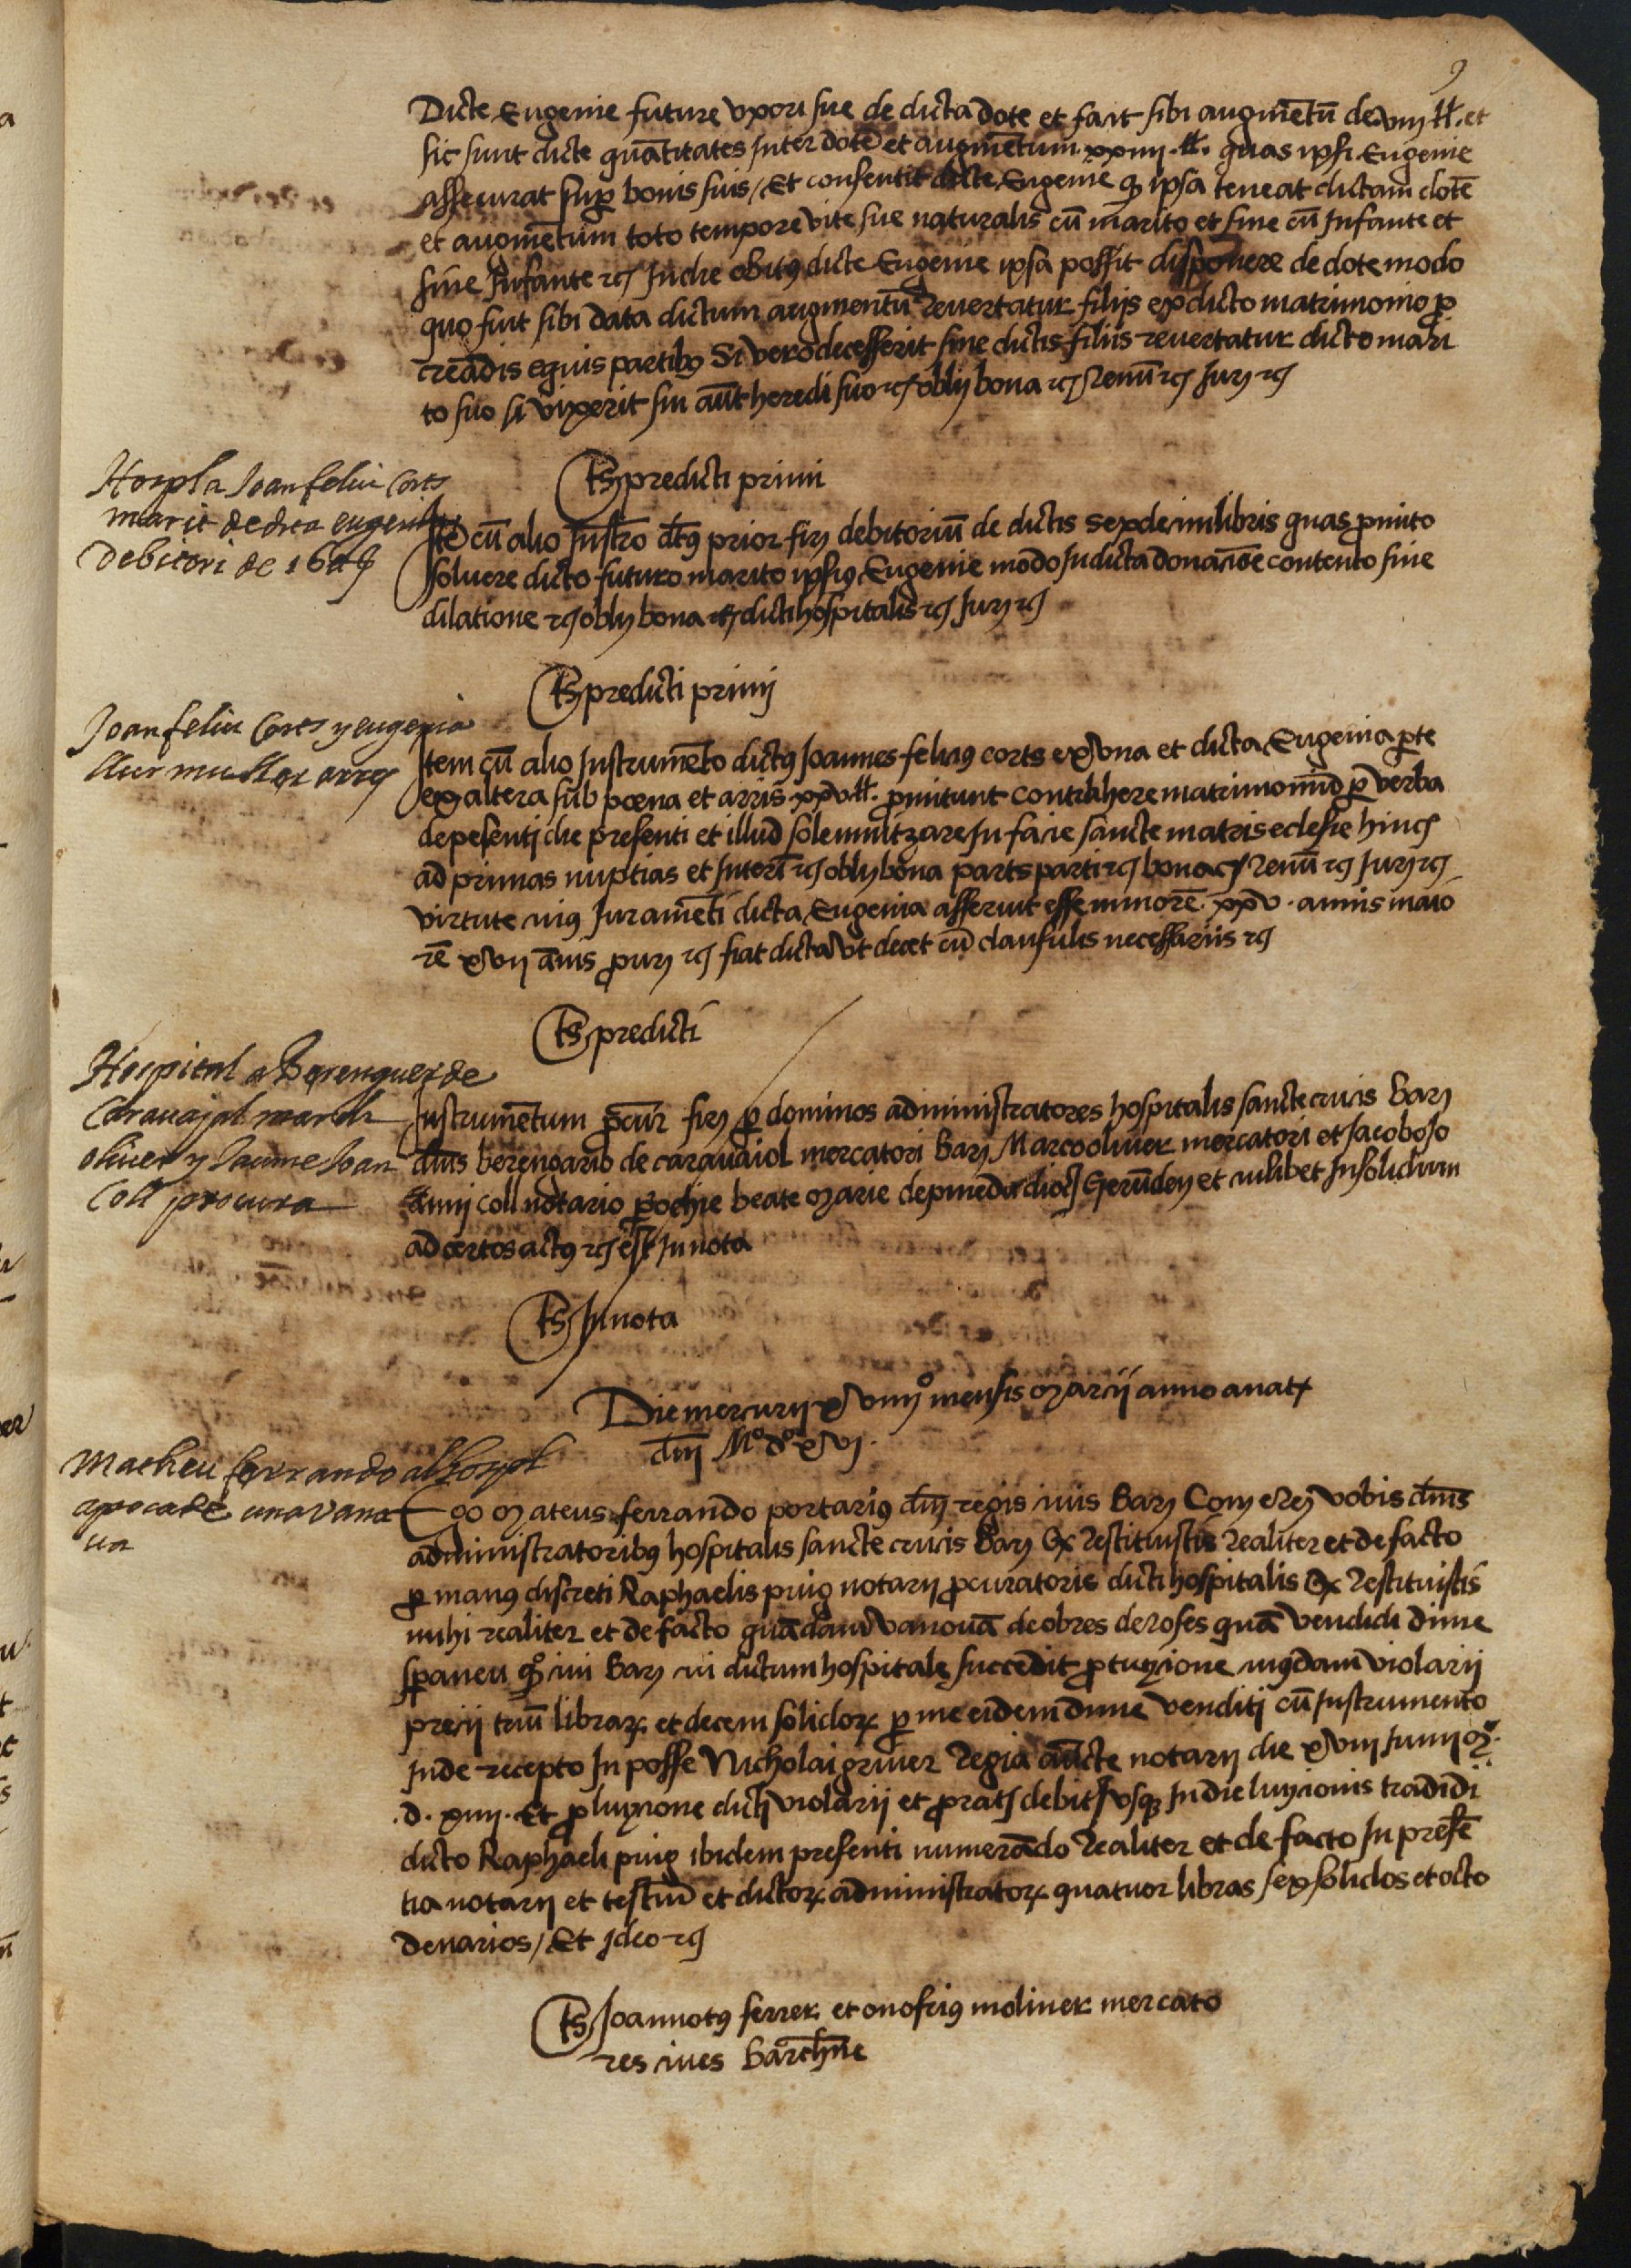 9
Dicte Eugenie future uxori sue de dicta dote et fa it sibi augmētū de viij ll. et
sic sunt dicte quātitates inter dotē et augmētum xxiiij ll. quas ipsi Eugenie
assecurat sup bonis suis / Et consentit dicte Eugenie q ipsa teneat dictam dotē
et augmētum toto tempore vite sue naturalis cū marito et sine cū infante et
sine infante rc In die obitus dicte Eugenie ipsa possit disponere de dote modo
quo fuit sibi data dictum augmentū revertatur filijs ex dicto matrimonio p
creādis equis partibus Si vero decesserit sine dictis filiis revertatur dicto mari
to suo si vixerit sin aūt heredi suo rc obly bona rc Renū rc Jury rc
Hospl a Joan feliu Corts
marit de dita eugenia
Debitori de 16 ll
Ts predicti primi
Itē cū alio Instro dctus prior firy debitoriū de dictis sexdecim libris quas pmito
solvere dicto futuro marito ipsius Eugenie modo in dicta donacioē contento sine
dilatione rc obly bona rc dicti hospitalis rc Jury rc
Ts predicti primi
Joan feliu Corts y eugenia
llur muller arres
Item cū alio Instrumēto dictus Joannes felius corts ex una et dicta Eugenia pte
ex altera sub poena et arris xxv ll. pmitunt contrahere matrimoniū p verba
de pesenti die presenti et illud solemnitzare in facie sancte matris eclesie hinc
ad primas nuptias et interī rc obly bona parts parti rc bona rc Renū rc Jury rc
virtute cuius Juramēti dicta Eugenia asseruit esse minorē xxv annis maio
rē xvij ānis p ury rc fiat dicta ut decet cū clausulis necessariis rc
Ts predicti
Hospital a Berenguer de
Caravajal march
oliver y Jaume Joan
Coll procura
Instrumētum pcur firy p dominos administratores hospitalis sancte crucis Bary
dnis berengario de caravaiol mercatori Bary Marco oliver mercatori et Jacobo Jo
anni coll notario pochie beate Marie de pineda dioc Gerūdey et cuilibet insolidum
ad certos actus rc est in nota
Ts In nota
Die mercurij xviiijº mensis Marcij anno a nate
dni Mº dº xvj.
Matheu ferrando al hospl
apoca de una vano
va
Ego Mateus ferrando portarius dni regis civis Bary Cony e Rey vobis dnis
administratoribus hospitalis sancte crucis Bary Q Restituistis realiter et de facto
p manus discreti Raphaelis puig notarij pcuratoris dicti hospitalis Q Restituistis
mihi realiter et de facto quādam vanovā de obres de roses quā vendidi dime
spaneu civi Bary cui dictum hospitale succedit p luyione cuiusdam violarij
precij triū librar et decem solidor p me eidem dime venditi cū Instrumento
Inde recepto In posse Nicholai griver Regia aucte notarij die xviij Junij M.
.d. xiiij. Et p luyione dicti violarij et prats debit usq in die luyionis tradidi
dicto Raphaeli puig ibidem presenti numerādo Realiter et de facto In presē
tia notarij et testiū et dictor administrator quatuor libras sex solidos et octo
denarios / Et ideo rc
Ts Joannotus ferrer et onofrius moliner mercato
res cives Barchne